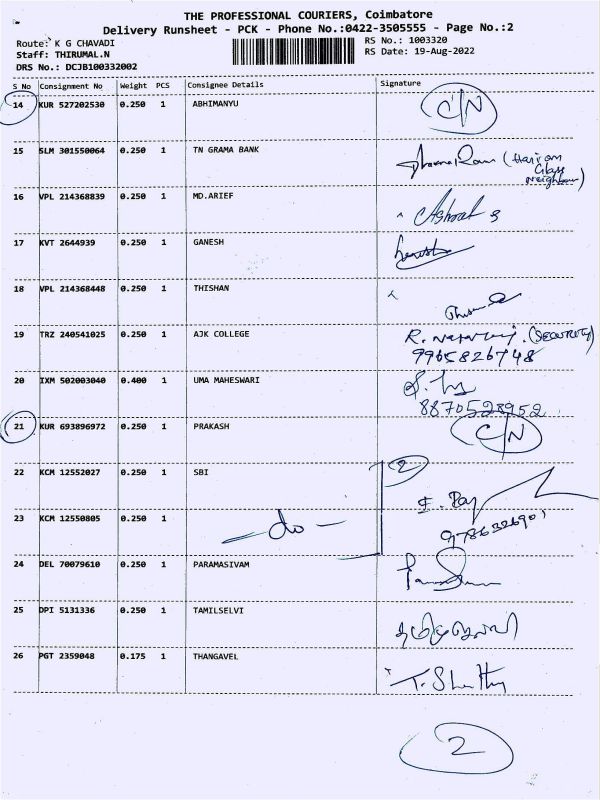 THE PROFESSIONAL COURIERS, Coimbatore
Delivery Runsheet - PCK - Phone No.:0422-3505555 - Page No.:2
Route: K G CHAVADI
RS No.: 1003320
Staff: THIRUMAL.N
RS Date: 19-Aug-2022
DRS No.: DCJB100332002
S No Consignment No Weight PCS Consignee Details Signature
14 KUR 527202530 0.250 1 ABHIMANYU C/N
15 SLM 301550064 0.250 1 TN GRAMA BANK
16 VPL 214368839 0.250 1 MD.ARIEF
17 KVT 2644939 0.250 1 GANESH
18 VPL 214368448 0.250 1 THISHAN
19 TRZ 240541025 0.250 1 AJK COLLEGE (SECURITY)
9965826748
20 IXM 502003040 0.400 1 UMA MAHESWARI
8870528952
21 KUR 693896972 0.250 1 PRAKASH C/N
22 KCM 12552027 0.250 1 SBI 2
23 KCM 12550805 0.250 1 - do -
24 DEL 70079610 0.250 1 PARAMASIVAM
25 DPI 5131336 0.250 1 TAMILSELVI
26 PGT 2359048 0.175 1 THANGAVEL
2